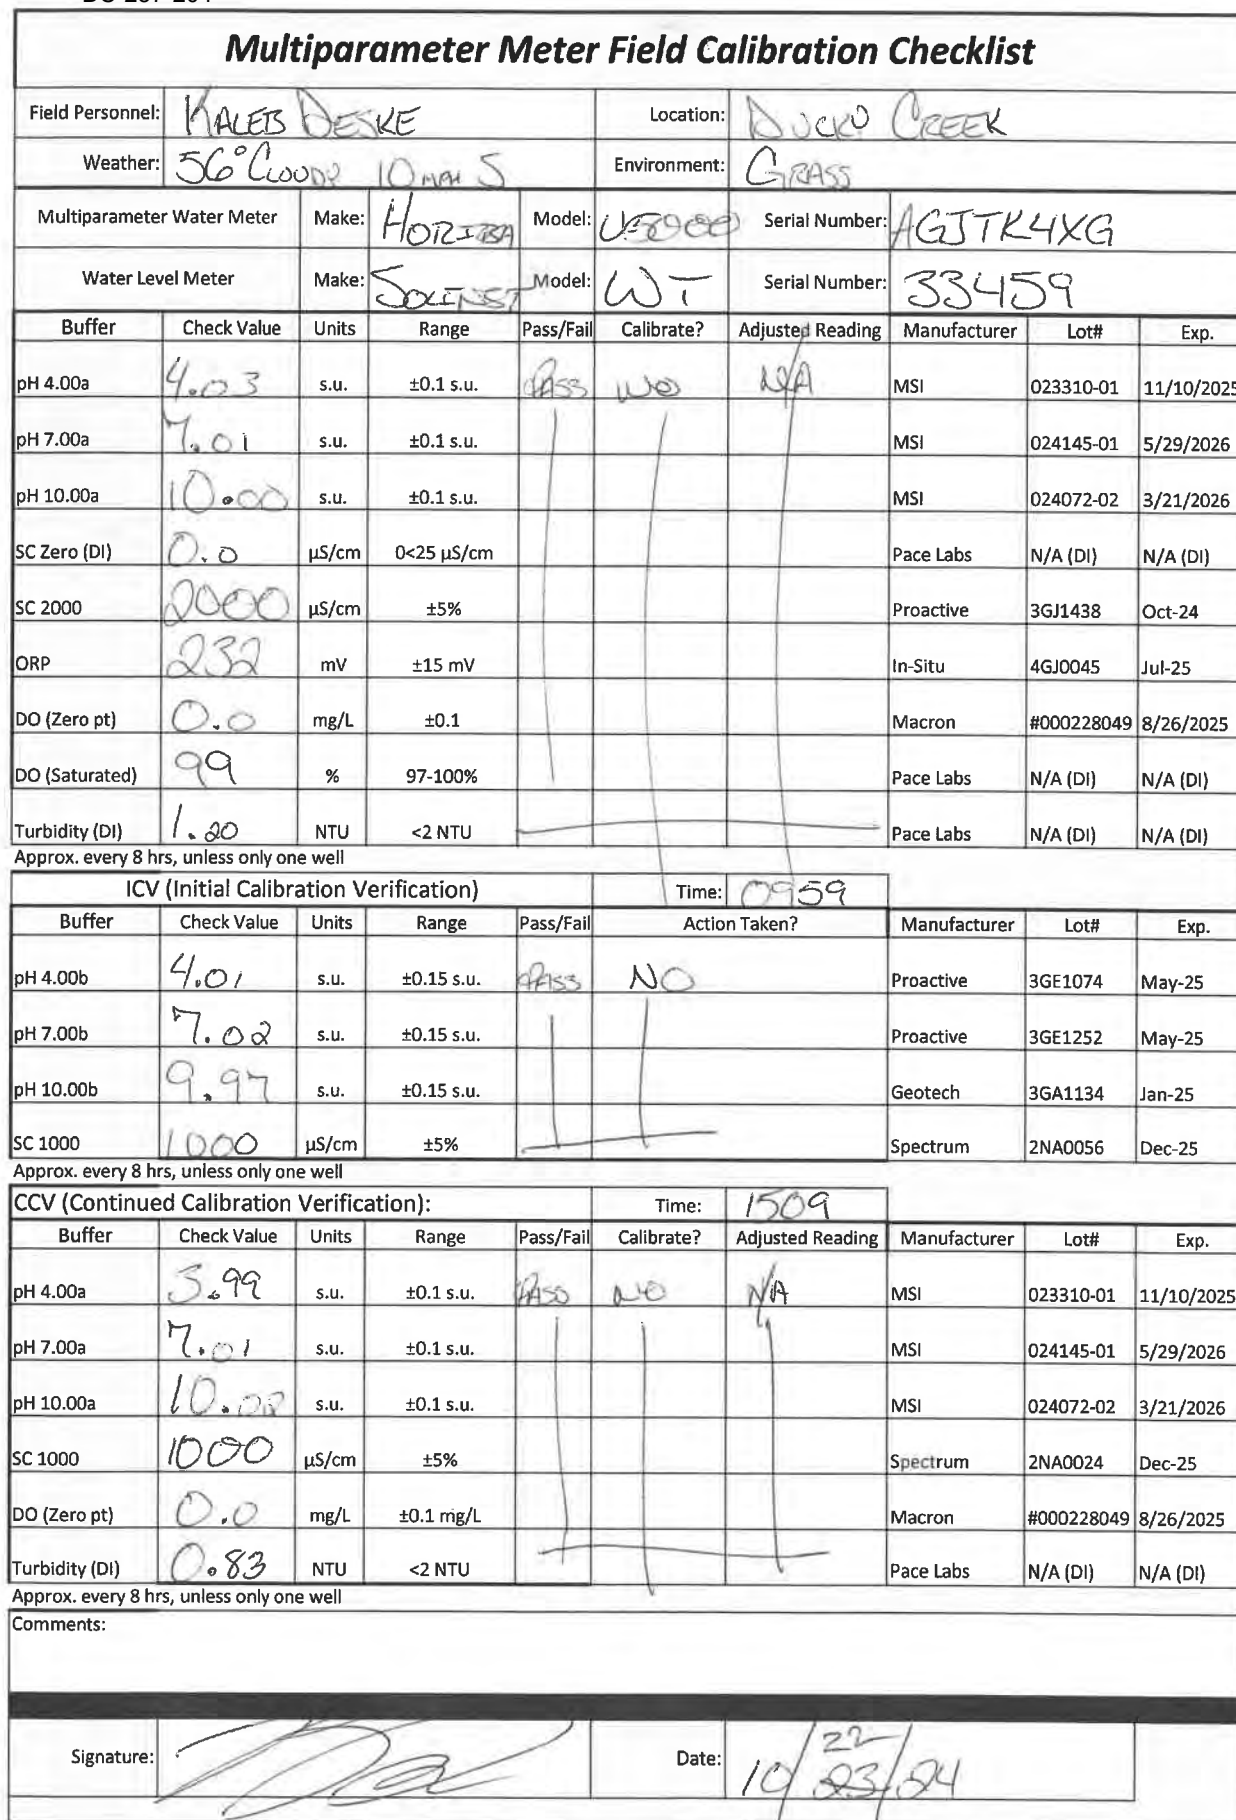 Multiparameter Meter Field Calibration Checklist
Field Personnel: KALEB DESKE Location: DUCK CREEK
Weather: 56° CLOUDY 10 MPH S Environment: GRASS
Multiparameter Water Meter Make: HORIBA Model: U5000 Serial Number: AGJTK4XG
Water Level Meter Make: SOLINST Model: WT Serial Number: 33459
Buffer Check Value Units Range Pass/Fail Calibrate? Adjusted Reading Manufacturer Lot# Exp.
pH 4.00a 4.03 s.u. ±0.1 s.u. PASS NO N/A MSI 023310-01 11/10/2025
pH 7.00a 7.01 s.u. ±0.1 s.u. MSI 024145-01 5/29/2026
pH 10.00a 10.00 s.u. ±0.1 s.u. MSI 024072-02 3/21/2026
SC Zero (DI) 0.0 µS/cm 0<25 µS/cm Pace Labs N/A (DI) N/A (DI)
SC 2000 2000 µS/cm ±5% Proactive 3GJ1438 Oct-24
ORP 232 mV ±15 mV In-Situ 4GJ0045 Jul-25
DO (Zero pt) 0.0 mg/L ±0.1 Macron #000228049 8/26/2025
DO (Saturated) 99 % 97-100% Pace Labs N/A (DI) N/A (DI)
Turbidity (DI) 1.20 NTU <2 NTU Pace Labs N/A (DI) N/A (DI)
Approx. every 8 hrs, unless only one well
ICV (Initial Calibration Verification) Time: 0959
Buffer Check Value Units Range Pass/Fail Action Taken? Manufacturer Lot# Exp.
pH 4.00b 4.01 s.u. ±0.15 s.u. PASS NO Proactive 3GE1074 May-25
pH 7.00b 7.02 s.u. ±0.15 s.u. Proactive 3GE1252 May-25
pH 10.00b 9.97 s.u. ±0.15 s.u. Geotech 3GA1134 Jan-25
SC 1000 1000 µS/cm ±5% Spectrum 2NA0056 Dec-25
Approx. every 8 hrs, unless only one well
CCV (Continued Calibration Verification): Time: 1509
Buffer Check Value Units Range Pass/Fail Calibrate? Adjusted Reading Manufacturer Lot# Exp.
pH 4.00a 3.99 s.u. ±0.1 s.u. PASS NO N/A MSI 023310-01 11/10/2025
pH 7.00a 7.01 s.u. ±0.1 s.u. MSI 024145-01 5/29/2026
pH 10.00a s.u. ±0.1 s.u. MSI 024072-02 3/21/2026
SC 1000 1000 µS/cm ±5% Spectrum 2NA0024 Dec-25
DO (Zero pt) 0.0 mg/L ±0.1 mg/L Macron #000228049 8/26/2025
Turbidity (DI) 0.83 NTU <2 NTU Pace Labs N/A (DI) N/A (DI)
Approx. every 8 hrs, unless only one well
Comments:
Signature: Date: 10/22/24